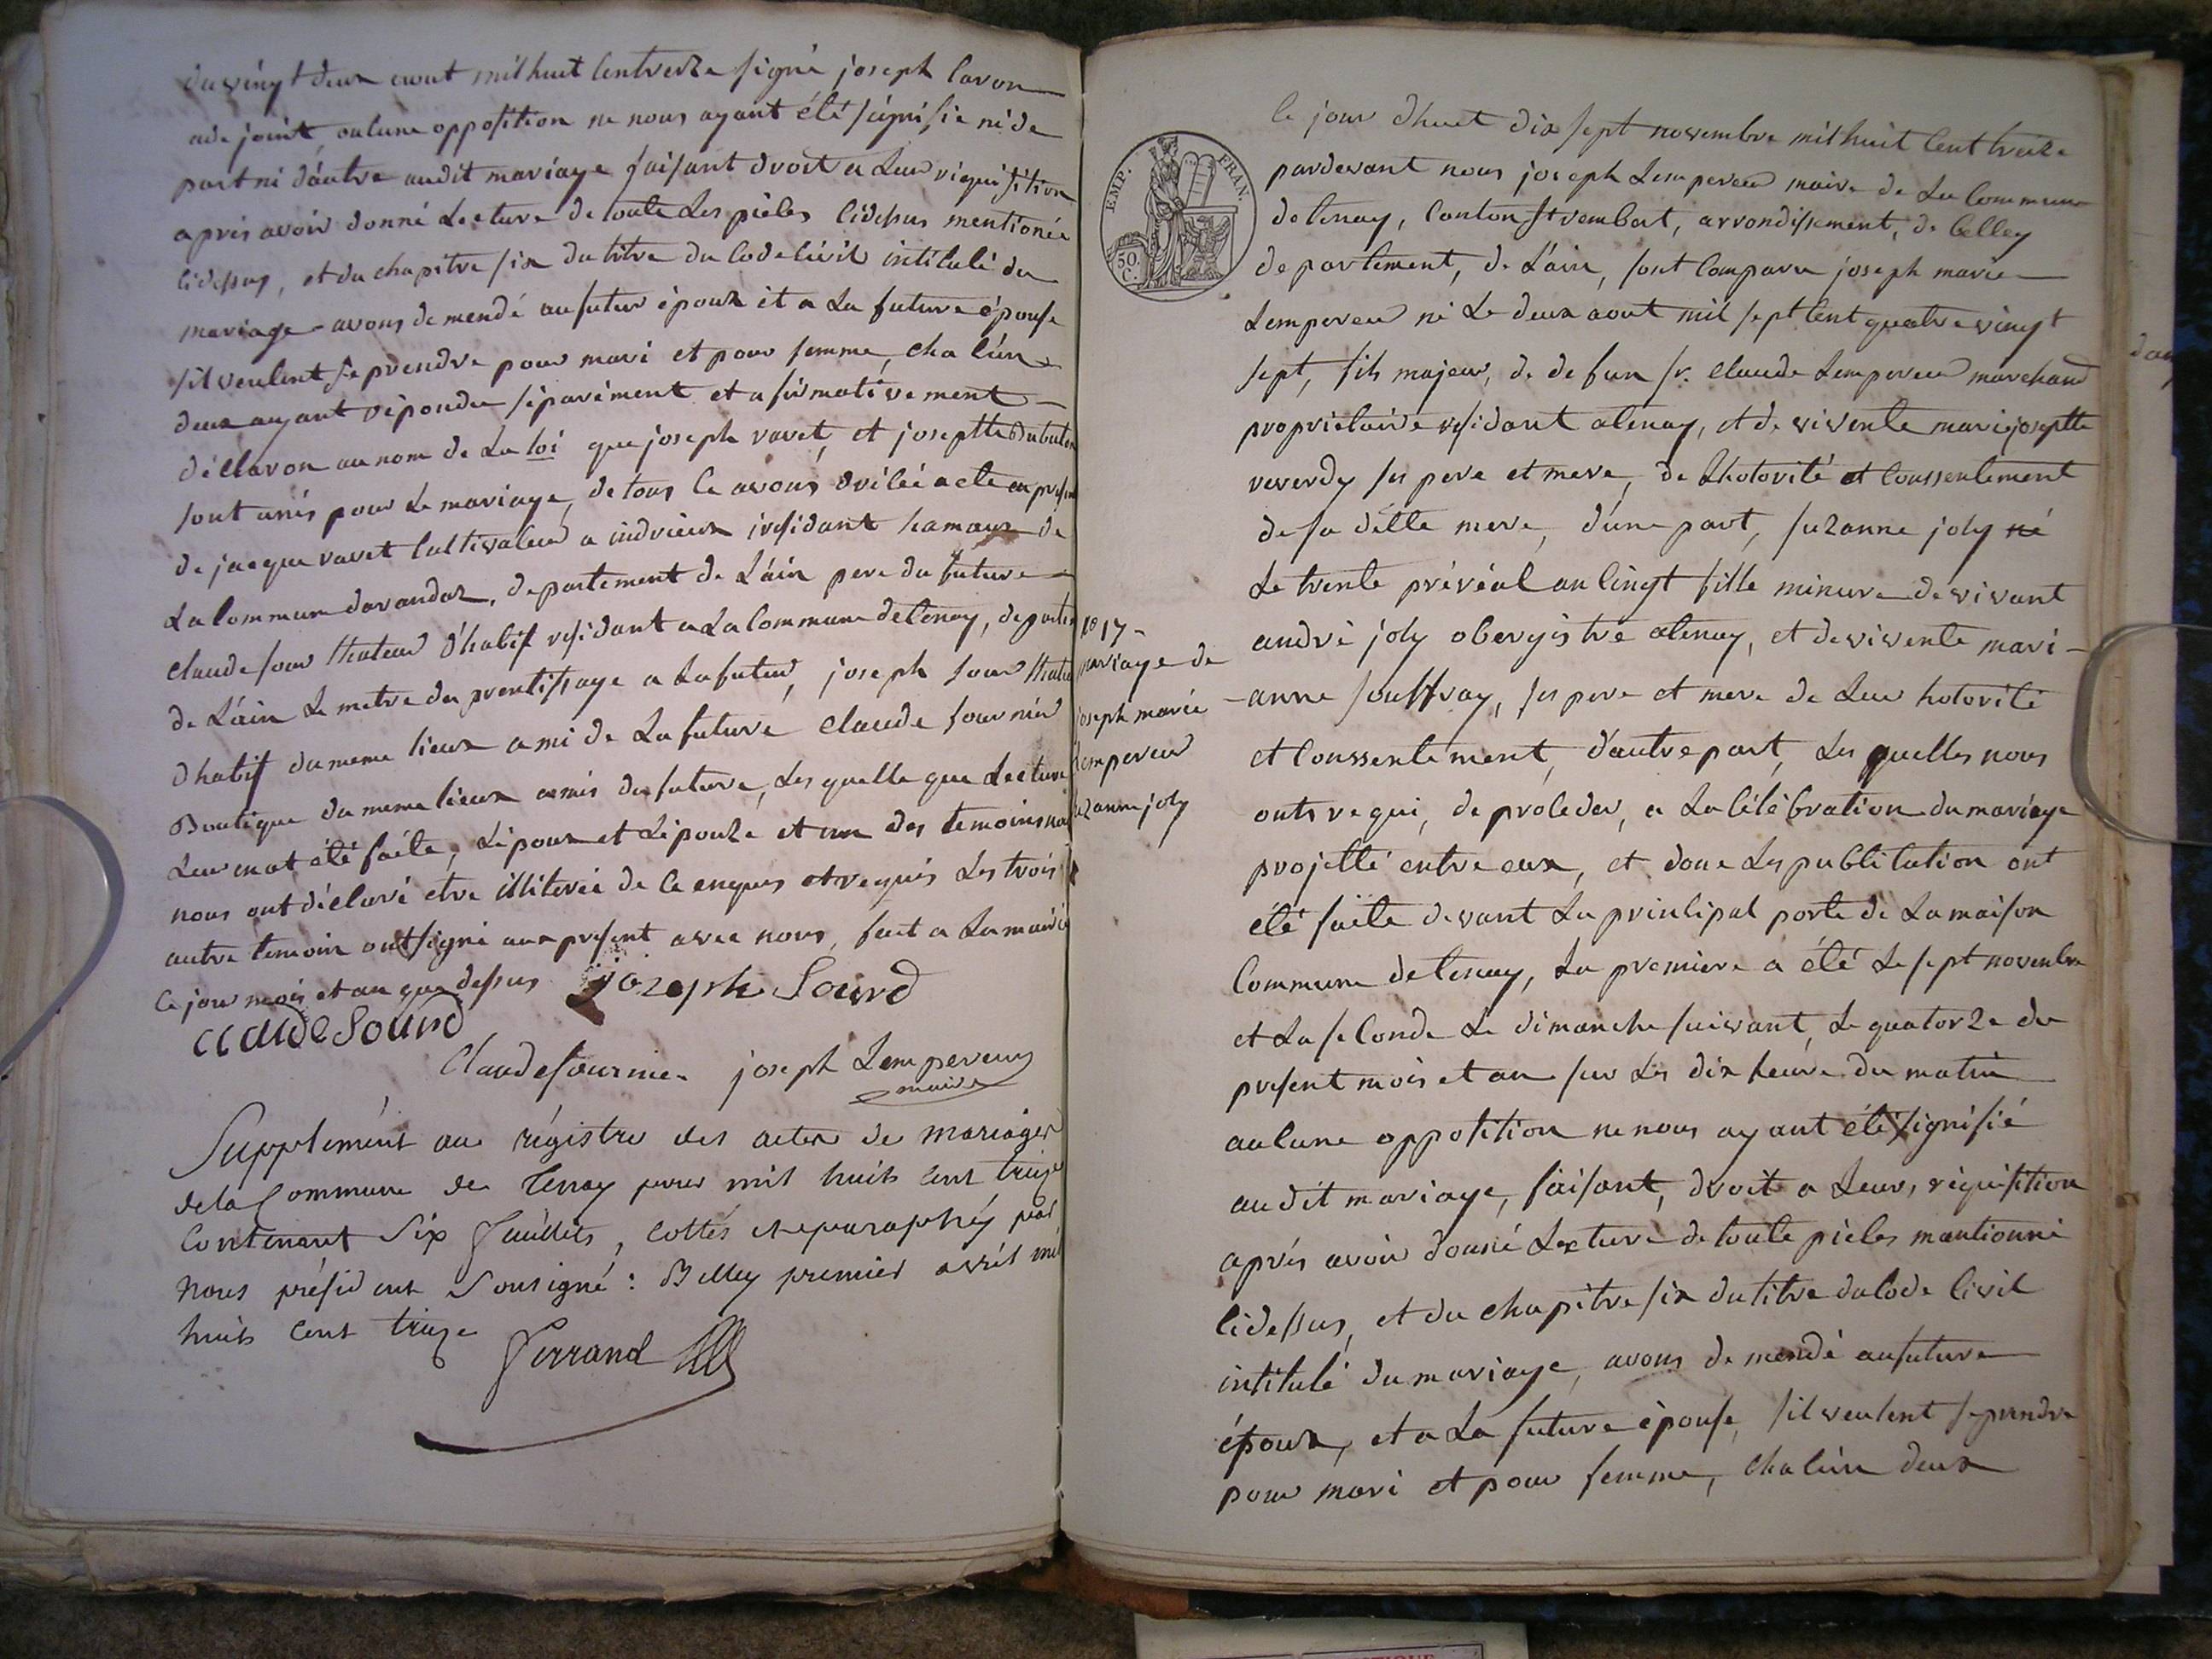 du vingt deux aout mil huit cent treize signé joseph Caron
ade joint, aucune opposition ne nous ayant été signifie ni de
part ni d'autre audit mariage faisant droit a Leur riquisition
apris avoir donné Lecture de toute Les pièces cidessus mentionée
cidessus, et du chapitre six du titre du Code Civil intitulé du
mariage - avons demendé au futur époux et a La future épouse
sil veulent se prendre pour mari et pour femme, chacun
deux ayant répondu séparément et afirmativement -
déclaron au nom de La loi que joseph ravet, et josephtte
sont unis pour Le mariage, de tous ce avons acte en
de jacque ravet Cultivateur a indrieux résidant hamaux de
La Commun darandaz, departement de L'ain pere du future
claude sour d'habit résidant a La Commune de tenay, departe
de L'ain Le metre da prentissage a La futeur, joseph sour
dhabit du meme lieux ami de La future Claude fournier
Boutique du meme lieux amis du future, Les quelle que Lecture
Leur enat été faite, Lépoux et Lépouze et un des temoins
nous ont déclaré etre illiterée de ce enquis et requis Les trois
autre temoin ont signé aux present avec nous, fait a La mairie
Ce jour mois et an que dessus jozeph Sourd
claude Sourd
Claude fournier joseph Lempereur
maire
Supplément au régistre des actes de mariages
de la Commune de Tenay pour mil huit cent treize
Contenant Six feuillets, cottés et paraphés par
Nous président Sousigné : Belley premier avril mil
huit cent treize
Ferrand
EMP. FRAN.
50. C.
Ce jour dhuet dix sept novembre mil huit Cent treize
pardevant nous joseph Lempereur maire de La Commune
de tenay, Canton st rembert, arrondissement, de belley
departement, de L'ain, sont Comparu joseph marie -
Lempereur né Le deux aout mil sept Cent quatre vingt
sept, fils majeur, de defun sr. Claude Lempereur marchand
propriétaire résidant atenay, et de vivente marie josephtte
reverdy ses pere et mere, de Lhotorité et Conssentement
de sa ditte mere, d'une part, suzanne joly né
Le trente préréal an Cingt fille minure de vivant
andré joly obergistre atenay, et de vivente mari -
- anne souffray, ses pere et mere de Leur hotorité
et Conssentement, d'autre part, Les quelles nous
onts requi, de proceder, a La Célébration du mariage
projetté entre eux, et donc Les publication ont
été faite devant La principal porte de La maison
Commune de tenay, La premiere a été Le sept novembre
et La seconde Le dimanche suivant, Le quatorze du
present mois et an sur Les dix heure du matin
aucune opposition ne nous ayant été signifié
audit mariage, faisant, droit a Leurs réquisition
aprés avoir donné Lecture de toute pieces mantionné
cidessus, et du chapitre six du titre du Code Civil
intitulé du mariage, avons demendé au future
époux, et a La future épouse, sil veulent se prendre
pour mari et pour femme, chacun deux
no 17 -
mariage de
joseph marie
Lempereur
suzanne joly